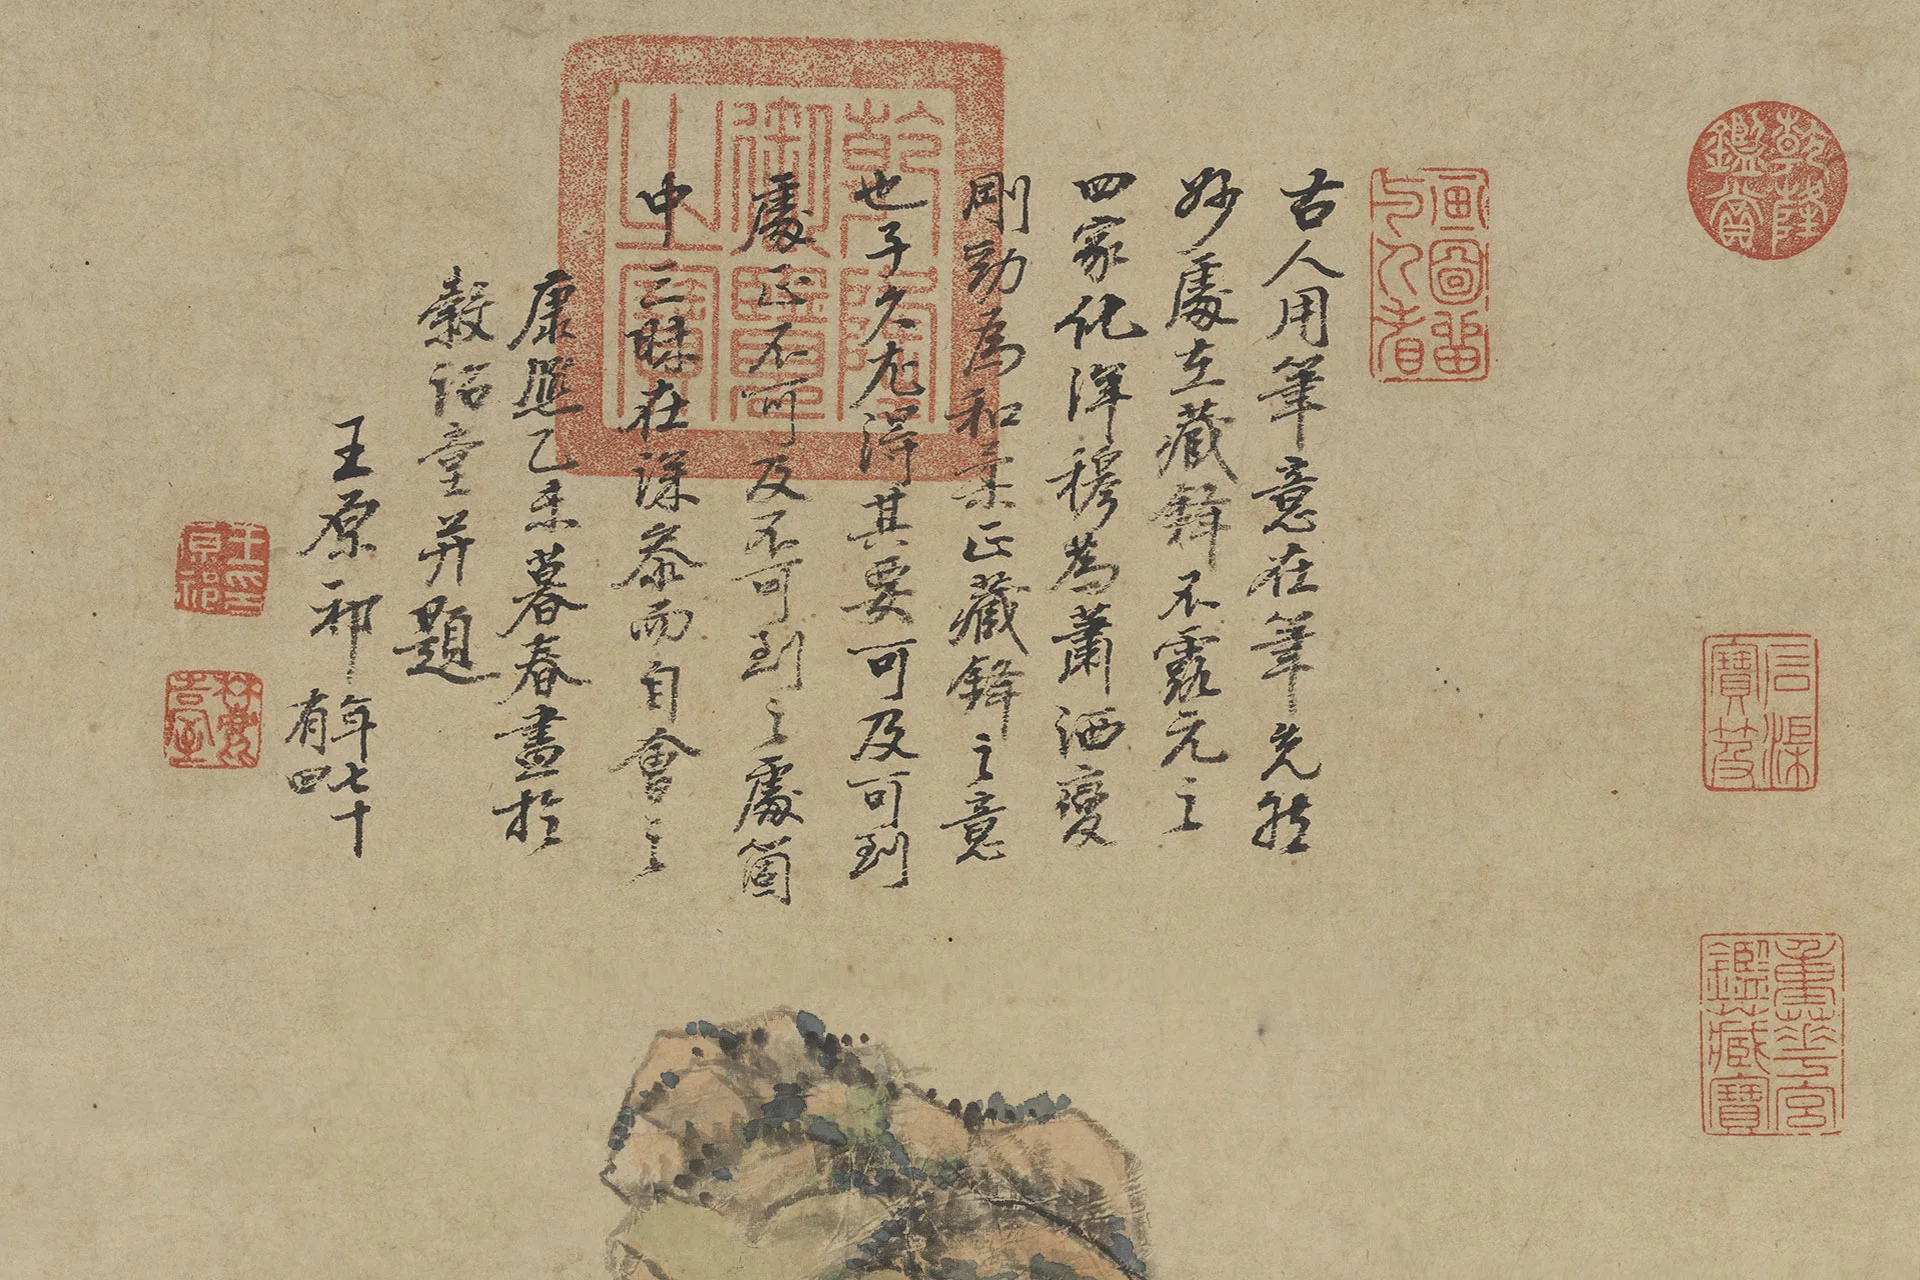 乾隆鑑賞
石渠寶笈
重華宮鑑藏寶
畫圖留與人看
乾隆御覽之寶
古人用筆意在筆先然
妙處在藏鋒不露元之
四家化渾穆為蕭洒變
剛勁為和柔正藏鋒之意
也子久尤得其要可及可到
處正不可及不可到之處箇
中三昧在深參而自會之
康熙乙未暮春畫於
穀詒堂并題
王原祁年七十有四
王原祁印